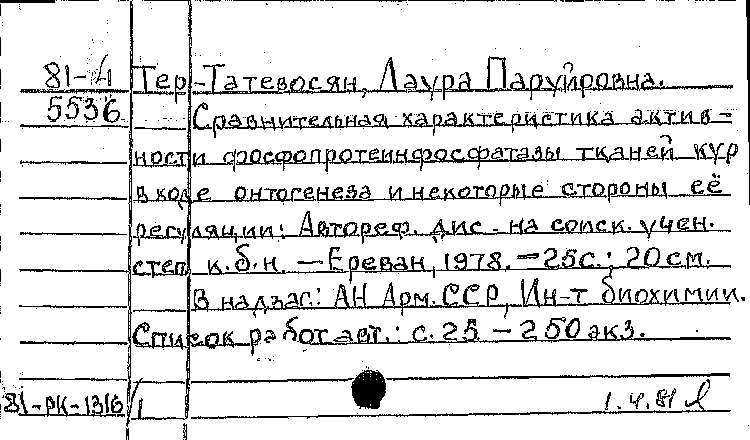 81-4 Тер-Татевосян, Лаура Паруйровна.
5536 Сравнительная характеристика актив-
ности фосфопротеинфосфатазы тканей кур
в ходе онтогенеза и некоторые стороны её
регуляции: Автореф. дис. на соиск. учен.
степ. к.б.н. — Ереван, 1978. — 25с.; 20см.
В надзаг.: АН Арм.ССР, Ин-т биохимии.
Список работ авт.: с. 25 — 250 экз.
81-РК-1316/1 1.4.81